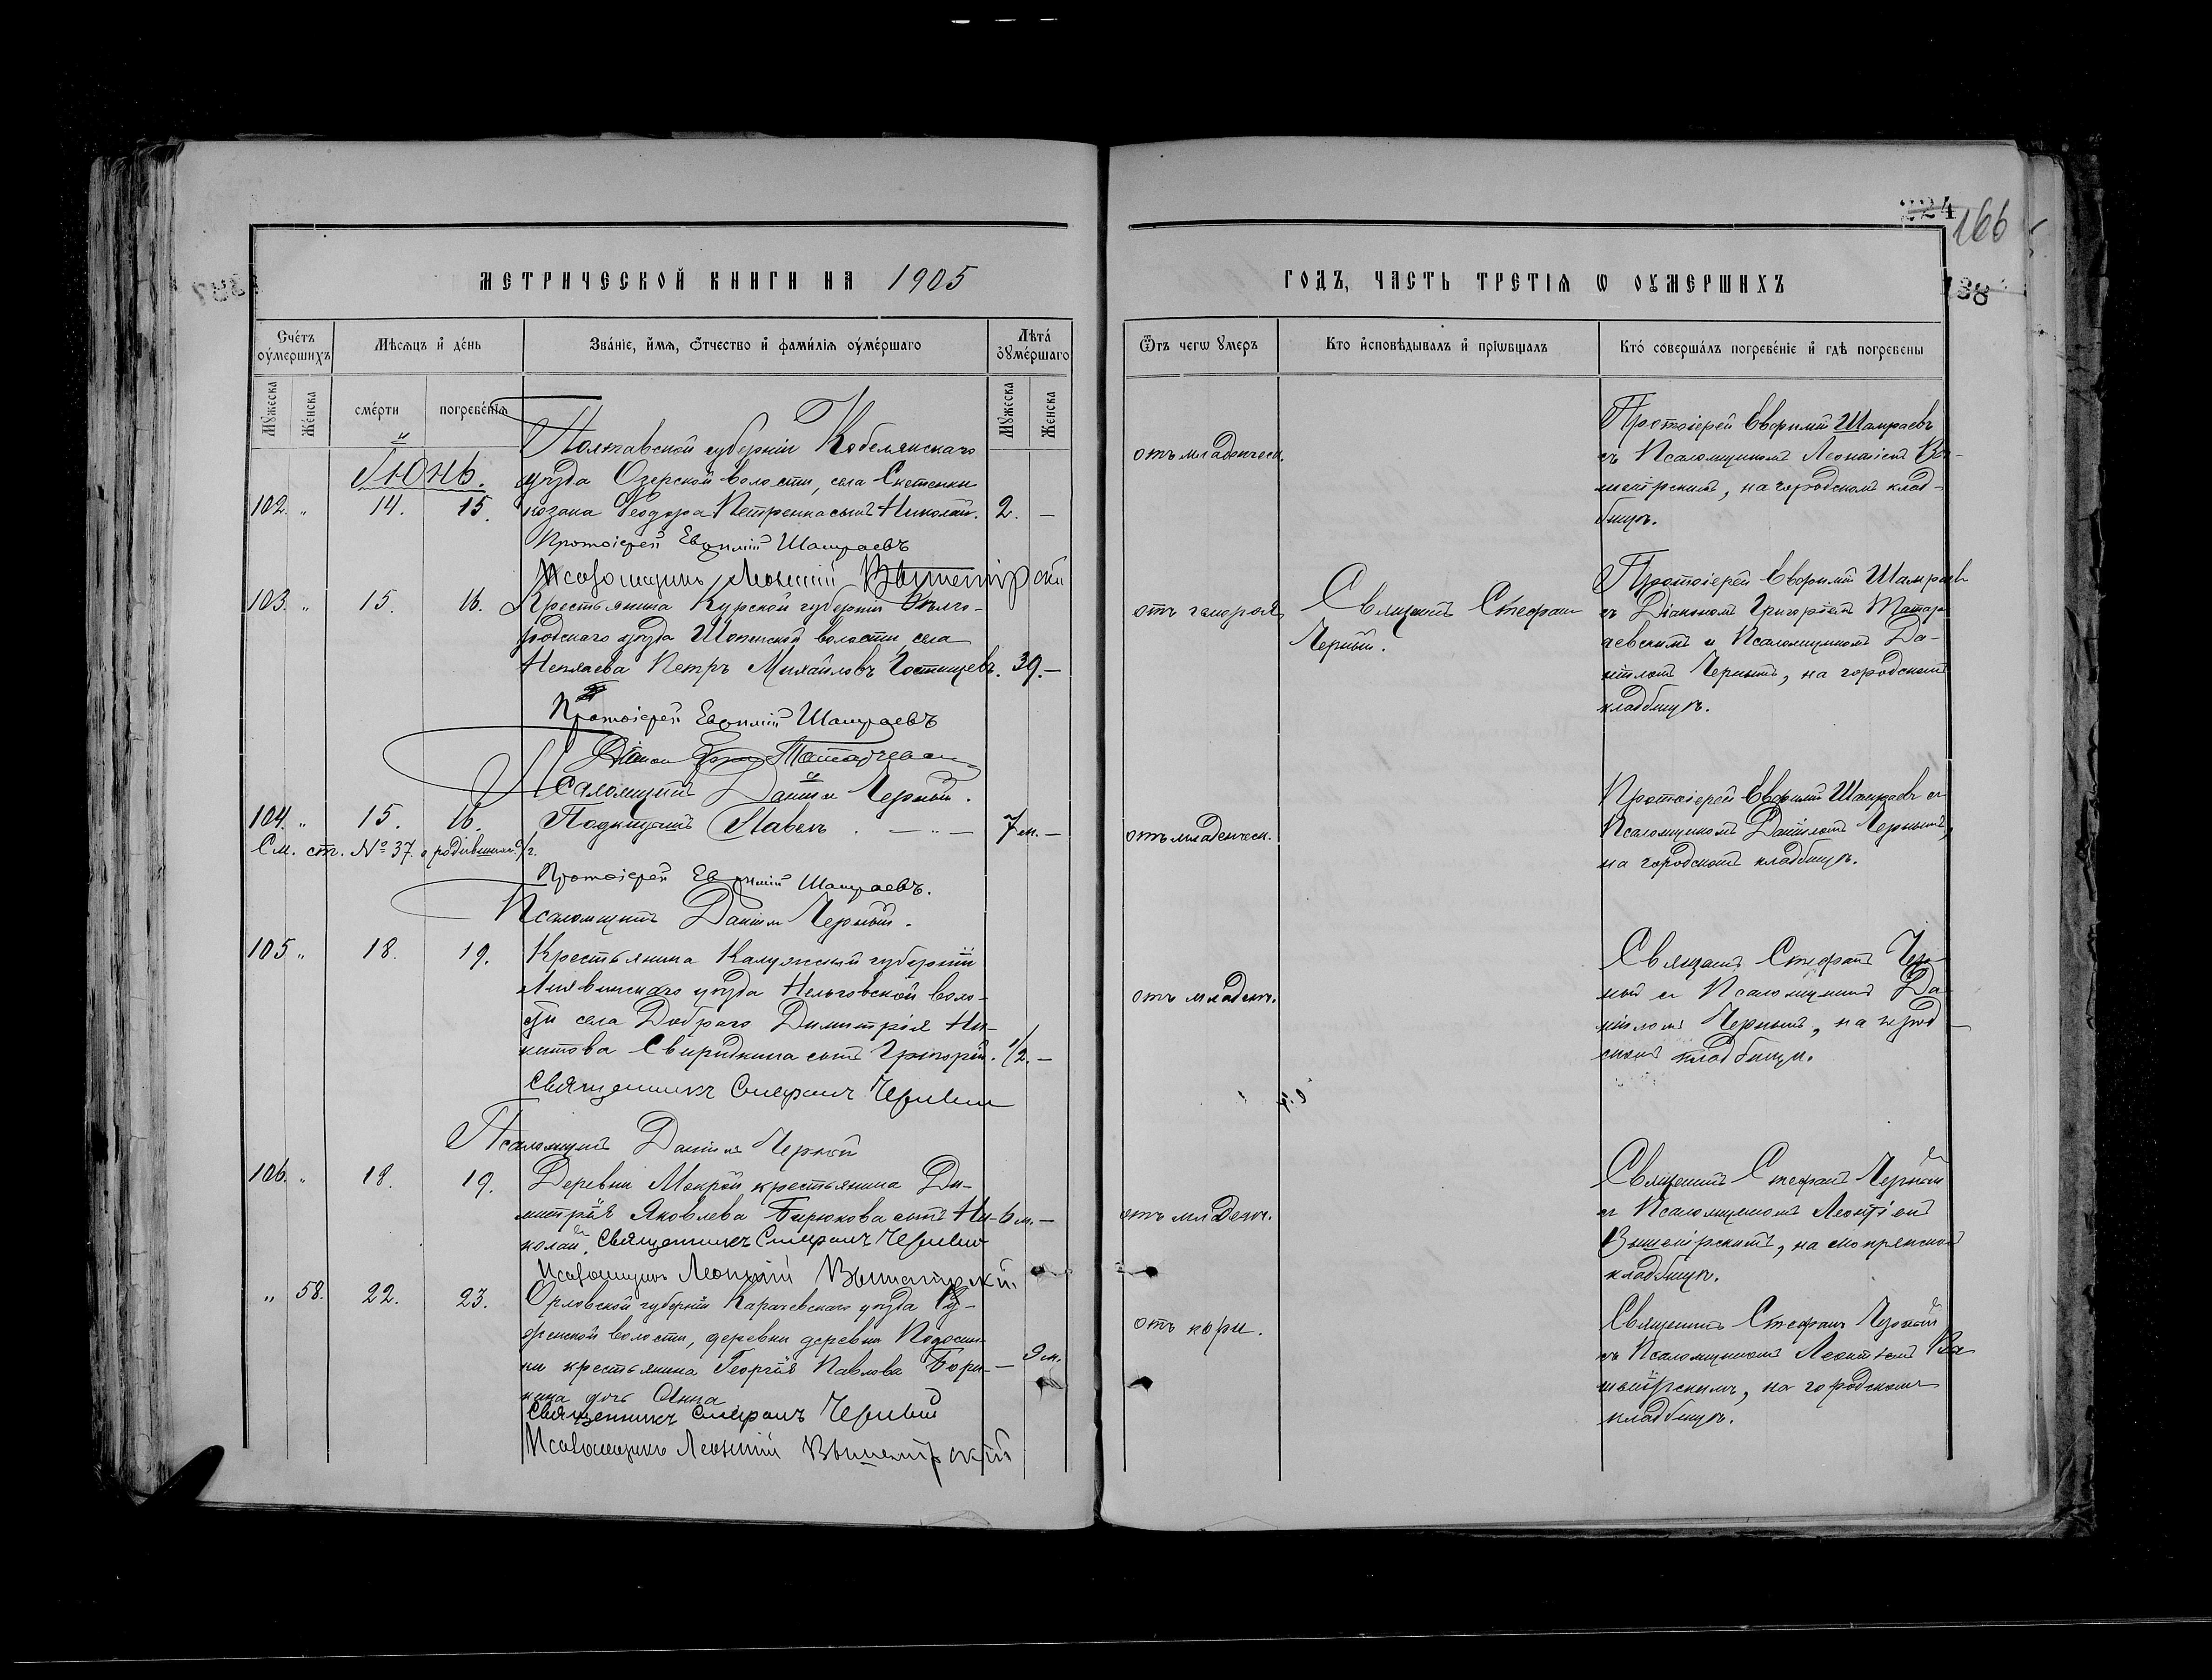 224
166
МЕТРИЧЕСКОЙ КНИГИ НА 1905
ГОДЪ, ЧАСТЬ ТРЕТІѦ Ѡ ОУМЕРШИХЪ
138
Сче́тъ оу́мершихъ
Мѣсѧцъ и҆ де́нь
Зва́ніе, и҆́мѧ, ѻ҆́тчество и҆ фами́лїѧ оу҆ме́ршаго
Лѣта́ оу҆ме́ршаго
Мꙋжеска
Же́нска
сме́рти
погребе́нїѧ
Мꙋжеска
Женска
Ѿъ чегѡ ᲂумеръ
Кто и҆сповѣ́дывалъ и҆ прїѡбщалъ
Кто́ соверша́лъ погребе́нїе и҆ гдѣ погребены
Іюнь.
Полтавской губерніи Кобелякскаго
уѣзда Озерской волости, села
102. " 14. 15. козака Ѳеодора Петренка сынъ Николай. 2. –
Протоіерей Евфимій Шамраевъ
Псаломщикъ Леонтій Вышемірскій
отъ младенческ.
Протоіерей Евфимій Шамраевъ
съ Псаломщикомъ Леонтіемъ Вы-
шемірскимъ, на городскомъ клад-
бищѣ.
103. " 15. 16. Крестьянина Курской губерніи Бѣлго-
родскаго уѣзда Шопинской волости села
Петръ Михайловъ Гостищевъ. 39. –
Протоіерей Евфимій Шамраевъ
Діаконъ
Псаломщикъ Даніилъ Черный.
отъ
Священникъ Стефанъ
Черный.
Протоіерей Евфимій Шамраевъ
съ Діакономъ Григоріемъ
и Псаломщикомъ Да-
ніиломъ Чернымъ, на городскомъ
кладбищѣ.
104. " 15. 16. Подкидышъ Павелъ. – " – 7 м. –
См. ст. № 37. о родившихся с/г.
Протоіерей Евфимій Шамраевъ.
Псаломщикъ Даніилъ Черный.
отъ младенческ.
Протоіерей Евфимій Шамраевъ съ
Псаломщикомъ Даніиломъ Чернымъ,
на городскомъ кладбищѣ.
105 " 18. 19. Крестьянина Калужской губерніи
Лихвинскаго уѣзда воло-
сти села Добраго Димитрія Ни-
китова Свиридкина сынъ Григорій. 1/2. –
Священникъ Стефанъ Черный
Псаломщикъ Даніилъ Черный
отъ младенч.
Священ. Стефанъ Чер-
ный съ Псаломщикомъ Да-
ніиломъ Чернымъ, на город-
скомъ кладбищѣ.
106. " 18. 19. Деревни Мокрой крестьянина Ди-
митрія Яковлева Бирюкова сынъ Ни- 6 м. –
колай. Священникъ Стефанъ Черный
Псаломщикъ Леонтій Вышемірскій.
отъ младенч.
Священникъ Стефанъ Черный
съ Псаломщикомъ Леонтіемъ
Вышемірскимъ, на мокрянскомъ
кладбищѣ.
" 58. 22. 23. Орловской губерніи Карачевскаго уѣзда
волости, деревни деревни
крестьянина Георгія Павлова – 9 м.
дочь Анна
Священникъ Стефанъ Черный
Псаломщикъ Леонтій Вышемірскій
отъ кори.
Священникъ Стефанъ Черный
съ Псаломщикомъ Леонтіемъ Вы-
шемірскимъ, на городскомъ
кладбищѣ.